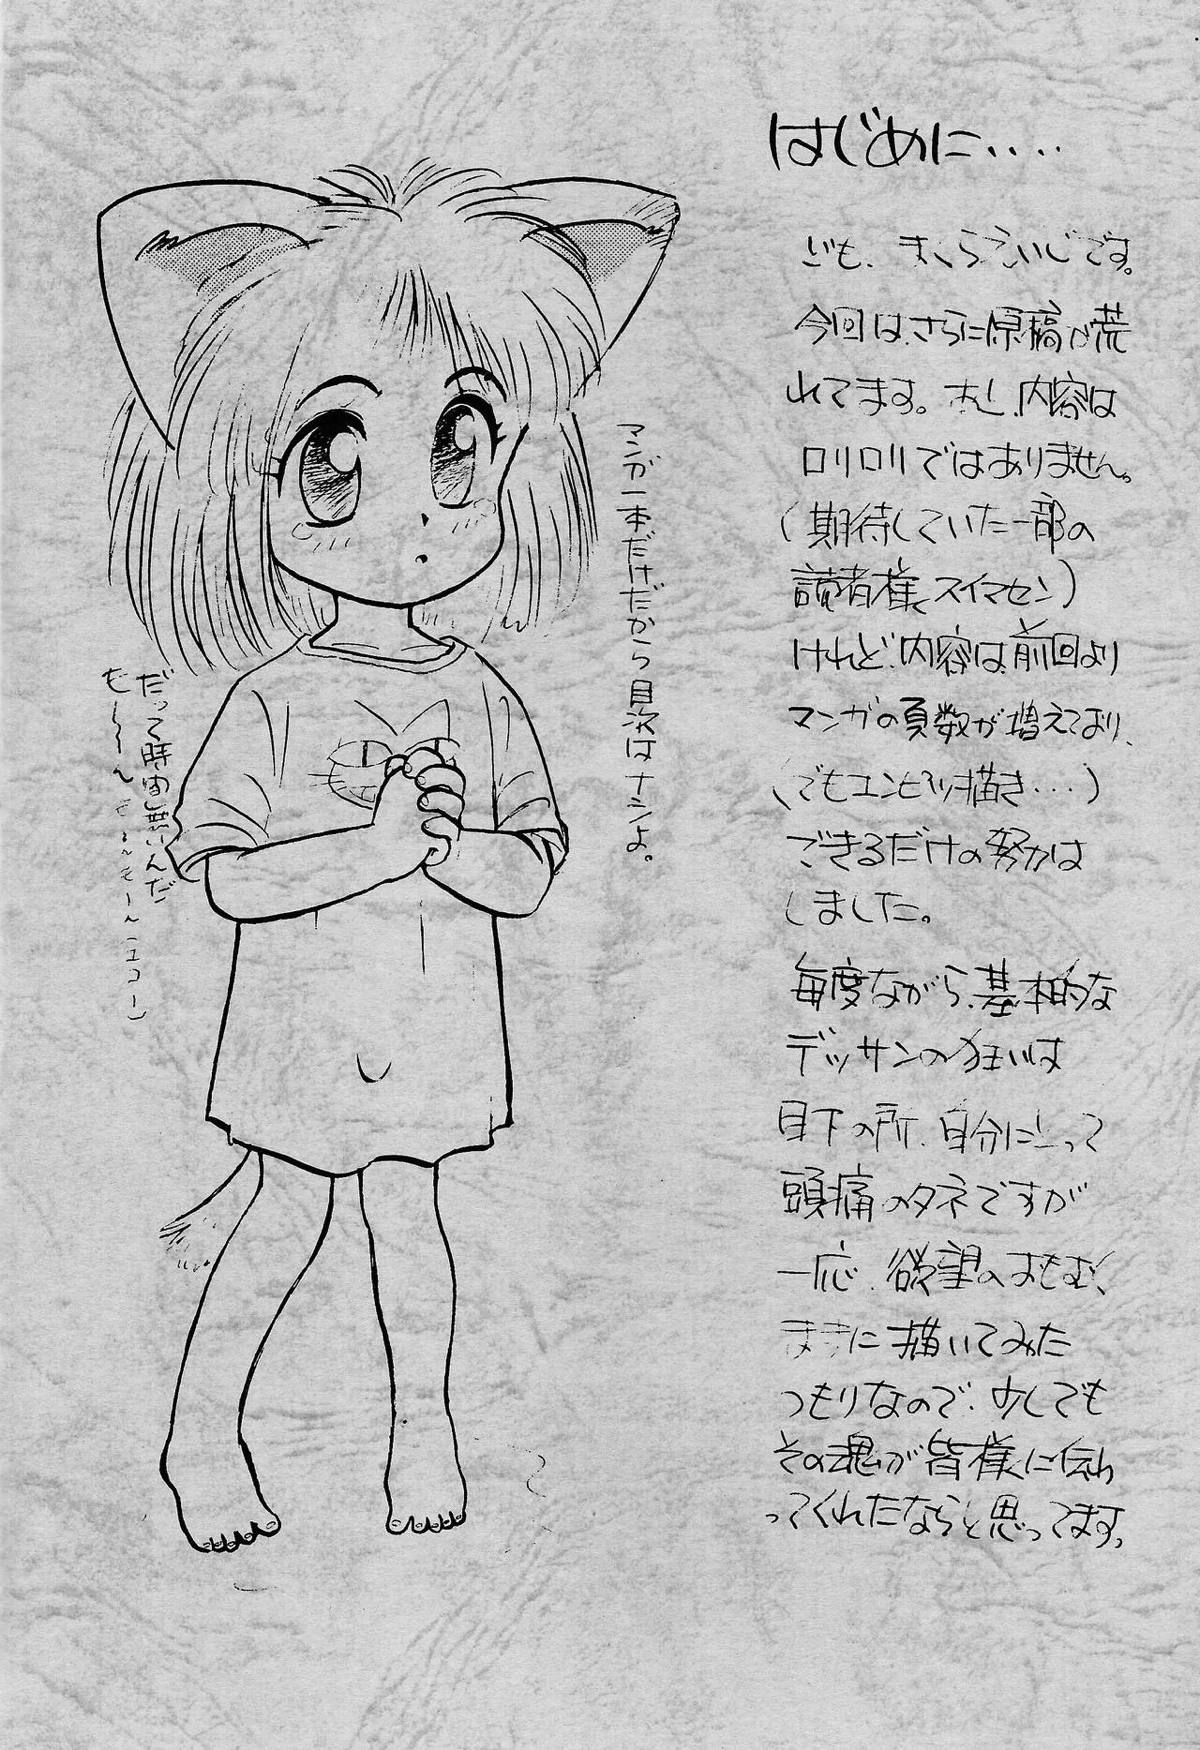 はじめに‥‥
ども、まくらえいじです。
今回は、さらに原稿が荒
れてます。次に、内容は
ロリロリではありません。
(期待していた一部の
読者様、スイマセン)
けれど、内容は、前回より
マンガの頁数が増えており、
(でもエンピツ描き‥‥)
できるだけの努力は
しました。
毎度ながら、基本的な
デッサンの狂いは
目下の所、自分にとって
頭痛のタネですが
一応、欲望のおもむく
ままに描いてみた
つもりなので、少しでも
その魂が皆様に伝わ
ってくれたならと思ってます。
マンガ一本だけだから目次はナシよ。
だって時間無いんだ
も〜〜〜ん も〜ん も〜ん(エコー)